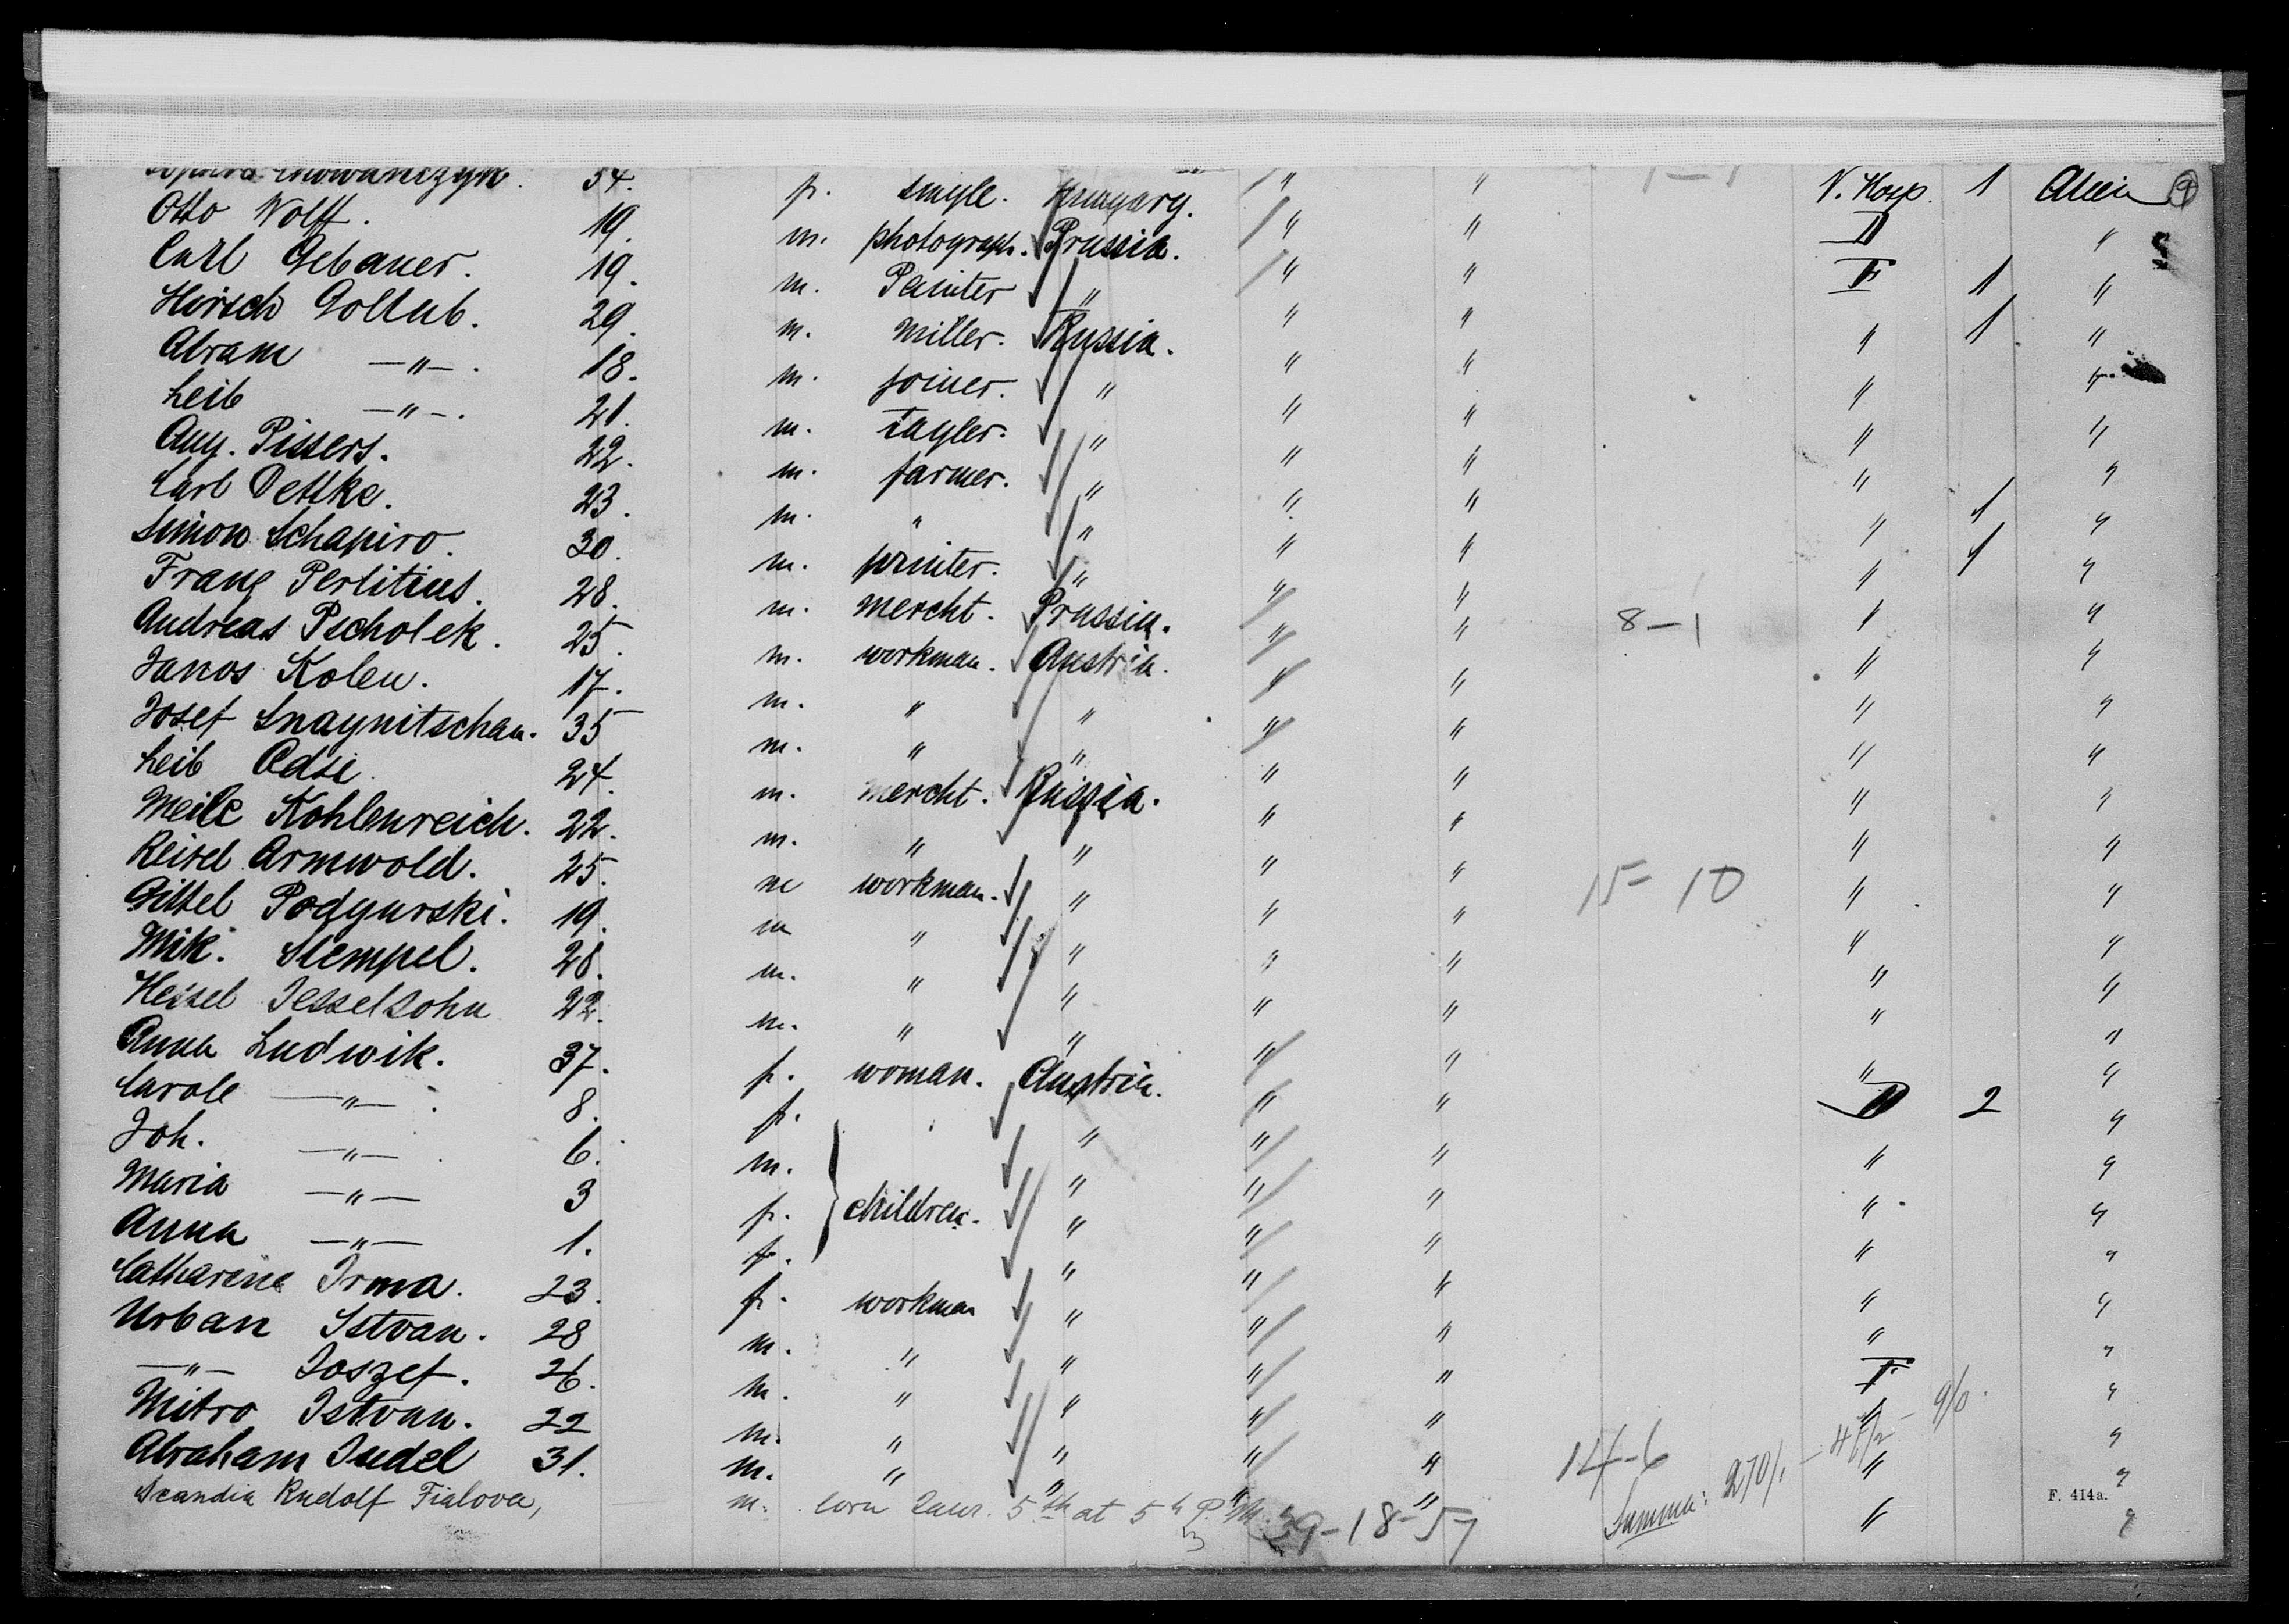 54. f. single. Hungary. " " V. Hosp. 1 Alein 9
Otto Wolff. 19. m. photograph. Prussia. " " "
Carl Gebauer. 19. m. Painter " " " 1 "
Hirsch Gollub. 29. m. miller. Russia. " " " 1 "
Abram —"—. 18. m. joiner. " " " " "
Leib —"—. 21. m. " " " " "
Aug. Pissers. 22. m. farmer. " " " " "
Carl Dettke. 23. m. " " " " " 1 "
Simon Schapiro. 30. m. printer. " " " " 1 "
Franz Perlitius. 28. m. mercht. Prussia. " " 8-1 " "
Andreas Pscholek. 25. m. workman. Austria. " " " "
Janos Kolen. 17. m. " " " " " "
Josef Snaynitschan. 35 m. " " " " " "
Leib Edsi 24. m. mercht. Russia. " " " "
Meile Kohlenreich. 22. m. " " " " " "
Reisel Armwold. 25. m workman. " " " 15-10 " "
Gittel Podgurski. 19. m " " " " " "
Mik. Stempel. 28. m. " " " " " "
Hessel Jesselsohn 22. m. " " " " " "
Anna Ludwik. 37. f. woman. Austria. " " " "
Carole —"—. 8. f. " " " 2 "
Joh. —"—. 6. m. " " " " "
Maria —"— 3 f. children. " " " " "
Anna —"— 1. f. " " " " "
Catharine Irma. 23. f. workman " " " " "
Urban Istvan. 28 m. " " " " " "
—"— Joszef. 26. m. " " " " "
Mitro Istvan. 22 m. " " " " " "
Abraham Judel 31. m. " " " " 14-6 " "
Scandia Rudolf Fialova, m. born Janr. 5th at 5 h P.M. " 39-18-57 Summa: 270/. " F. 414a. "